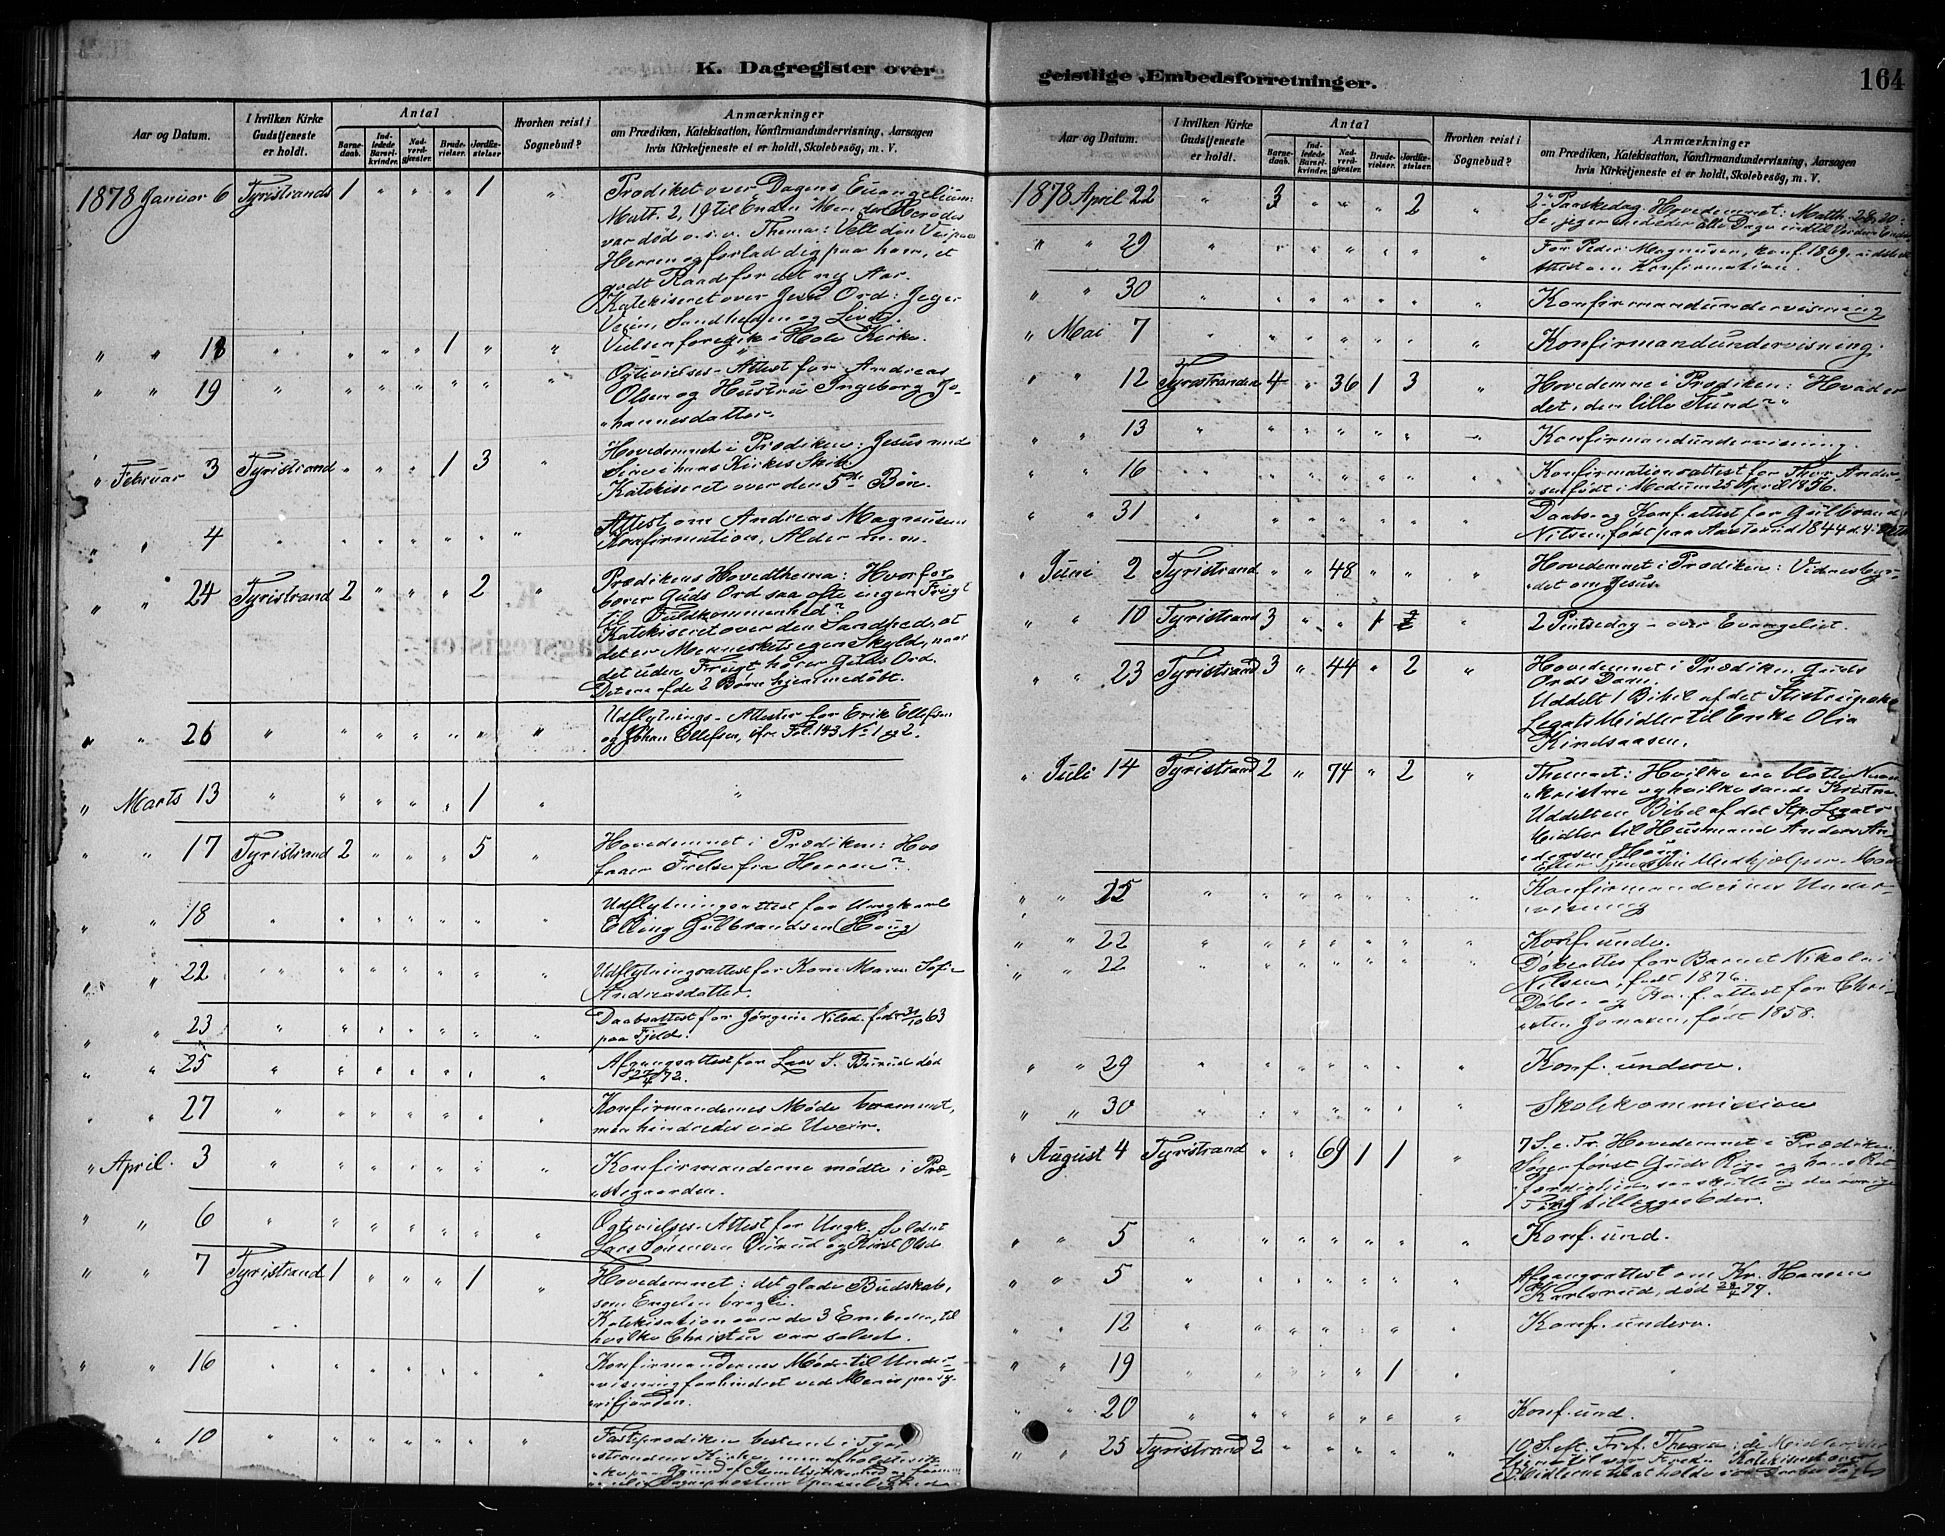 K. Dagregister over
geistlige Embedsforretninger.
164
Aar og Datum.
I hvilken Kirke
Gudstjeneste
er holdt.
Antal
Barne-
daab.
Ind-
ledede
Barsel-
kvinder.
Nad-
verd-
gjester.
Brude-
vielser.
Jordfæ-
stelser
Hvorhen reist i
Sognebud?
Anmærkninger
om Prædiken, Katekisation, Konfirmandundervisning, Aarsagen
hvis Kirketjeneste ei er holdt, Skolebesög, m. V.
1878 Januar 6 Tyristrands 1 " " " 1 "
Prædiket over Dagens Evangelium:
Matt. 2, 19 til Enden Men da Herodes
var død o.s.v. Thema: Velt din Vei paa
Herren og forlad dig paa ham, et
godt Raad for det ny Aar.
Katekiseret over Jesu Ord: Jeg er
Veien, Sandheden og Livet.
" " 18 " " " " 1 " "
Vielsen foregik i Hole Kirke.
" " 19 " " " " " " "
Ogtevielses-Attest for Andreas
Olsen og Hustru Ingeborg Jo-
hannesdatter.
" Februar 3 Tyristrand " " " 1 3 "
Hovedemnet i Prædiken: Jesus med
Sine i hans Kirkes Skib.
Katekiseret over den 5te Bøn.
" " 4 " " " " " " "
Attest om Andreas Magnusens
Konfirmation, Alder m. m.
" " 24 Tyristrand 2 " " " 2 "
Prædikens Hovedthema: Hvorfor
bærer Guds Ord saa ofte ingen Frugt
til Fuldkommenhed?
Katekiseret over den Sandhed, at
det er Menneskets egen Skyld, naar
det uden Frugt hører Guds Ord.
Det ene af de 2 Børn hjemmedøbt.
" " 26 " " " " " " "
Udflytnings-Attester for Erik Ellefsen
og Johan Ellefsen, cfr. Fol. 143 No 1 og 2.
" Marts 13 " " " " " 1 "
"
" " 17 Tyristrand 2 " " " 5 "
Hovedemnet i Prædiken: Hvo
faaer Frelse fra Herren?
" 18 " " " " " " "
Udflytningsattest for Ungkarl
Elling Gulbrandsen (Houg)
" 22 " " " " " " "
Udflytningsattest for Karen Maren Sofie
Andreasdatter.
" " 23 " " " " " " "
Daabsattest for Jørgine Nilsd. født 31/10 63
paa Fjeld.
" " 25 " " " " " " "
Afgangsattest for Lars S. Burud død
27/4 72.
" " 27 " " " " " " "
Konfirmandernes Møde berammet,
men hindredes ved Uveir.
" April. 3 " " " " " " "
Konfirmanderne mødte i Præ-
stegaarden.
" " 6 " " " " " " "
Ogtevielses-Attest for Ungk. Soldat
Lars Burud og Olsd.
" " 7 Tyristrand 1 " " " 1 "
Hovedemnet: det glade Budskab,
som Engelen bragte.
Katekisation over de 3 Embeder, til
hvilke Christus var salvet.
" " 16 " " " " " " "
Konfirmandernes Møde til Under-
visning forhindret ved Menis paa Ty-
rifjorden.
" 10 " " " " " " "
Fasteprædiken bestemt i Tyri-
strandens Kirke,
Aar og Datum.
I hvilken Kirke
Gudstjeneste
er holdt.
Antal
Barne-
daab.
Ind-
ledede
Barsel-
kvinder.
Nad-
verd-
gjester.
Brude-
vielser.
Jordfæ-
stelser.
Hvorhen reist i
Sognebud?
Anmærkninger
om Prædiken, Katekisation, Konfirmandundervisning, Aarsagen
hvis Kirketjeneste ei er holdt, Skolebesög, m. V.
1878 April 22 " 3 " " " 2 "
2. Paaskedag. Hovedemnet: Matth. 28. 20:
Se, jeg er med eder alle Dage indtil Verdens Ende.
" " 29 " " " " " " "
For Peder Magnusen, konf. 1869, udstedt
Attest om Konfirmation.
" " 30 " " " " " " "
Konfirmandundervisning
" Mai 7 " " " " " " "
Konfirmandundervisning.
" " 12 Tyristranden 4 " 36 1 3 "
Hovedemne i Prædiken: "Hvad er
det, den lille Stund?"
" " 13 " " " " " " "
Konfirmandundervisning.
" " 16 " " " " " " "
Konfirmationsattest for Thor Ander-
sen født i Modum 25 April 1856.
" " 31 " " " " " " "
Daabs- og Konf. attest for Gulbrand
Nilsen, født paa 1844 d. 4.
" Juni 2 Tyristrand " " 48 " " "
Hovedemnet i Prædiken: Vidnesbyr-
det om Jesus.
" " 10 Tyristrand 3 " " 1 "
2 Pintsedag - over Evangeliet.
" " 23 Tyristrand 3 " 44 " 2 "
Hovedemnet i Prædiken Guds
Ords Dom.
Uddelt 1 Bibel af det Stistrupske
Legats Midler til Enke Olia
Kindsaasen.
" Juli 14 Tyristrand 2 " 74 " 2 "
Themaet: Hvilke ere blotte Navn-
kristne og hvilke sande Kristne.
Uddelt en Bibel af det Stp. Legats
Midler til Husmand Anders An-
dersen Houg.
" " 15 " " " " " " "
Konfirmandernes Under-
visning
" " 22 " " " " " " "
Konf. under.
" " 22 " " " " " " "
Døbeattest for Barnet Nikolai
Nilsen, født 1876.
Døbe- og Konf. attest for Chri-
sten Jonasen, født 1858.
" " 29 " " " " " " "
Konf. underv.
" " 30 " " " " " " "
Skolekommission
" August 4 Tyristrand " " 69 1 1 "
7 S. e. Tr. Hovedemnet i Prædiken
Søger først Guds Rige og hans Ret-
færdighed, saa skulle og de øvrige
Ting tillægges eder.
" " 5 " " " " " " "
Konf. und.
" " 5 " " " " " " "
Afgangsattest om Kr. Hansen
Karlsrud, død
" " 12 " " " " " " "
Konf. underv.
" " 19 " " " " 1 " "
" " 20 " " " " " " "
Konf. und.
" " 25 Tyristrand 2 " " " " "
10 S. e. Tref. Thema: de Midler, der
tjene til vor Fred. Katekiseret over